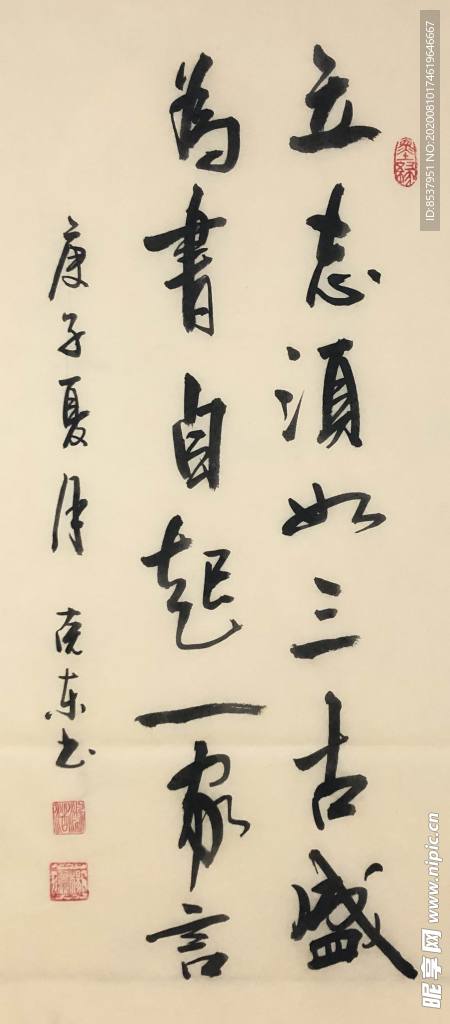 立志須如三古盛
為書自起一家言
庚子夏月 克东书
墨缘
ID:8537951 NO:20200810174619646667
昵享网 www.nipic.cn